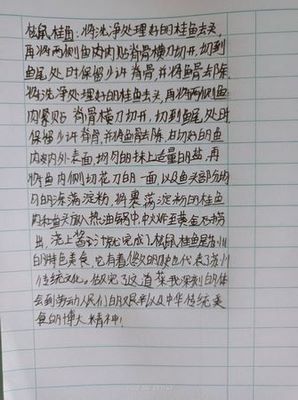 松鼠桂鱼：将洗净处理好的桂鱼去头，
再将两侧鱼肉内贴脊骨横刀切开，切到
鱼尾处时保留少许脊骨，并将鱼骨去除
将洗净处理好的桂鱼去头，再将两侧鱼
肉贴脊骨横刀切开，切到鱼尾处时
保留少许脊骨，并将鱼骨去除，且切好的鱼
肉内外表面均匀的抹上适量的盐，再
将鱼肉侧切花刀的一面，以及鱼头部分均
匀的沾满淀粉，将裹满淀粉的桂鱼
肉和鱼头放入热油锅中，中火炸至黄金色捞
出，浇上酱汁就完成了松鼠桂鱼是苏州
的特色美食，它有着悠久的历史代表了苏州
传统文化。做完了这道菜我深刻的体
会到劳动人民们的艰辛以及中华传统美
食的博大精神！